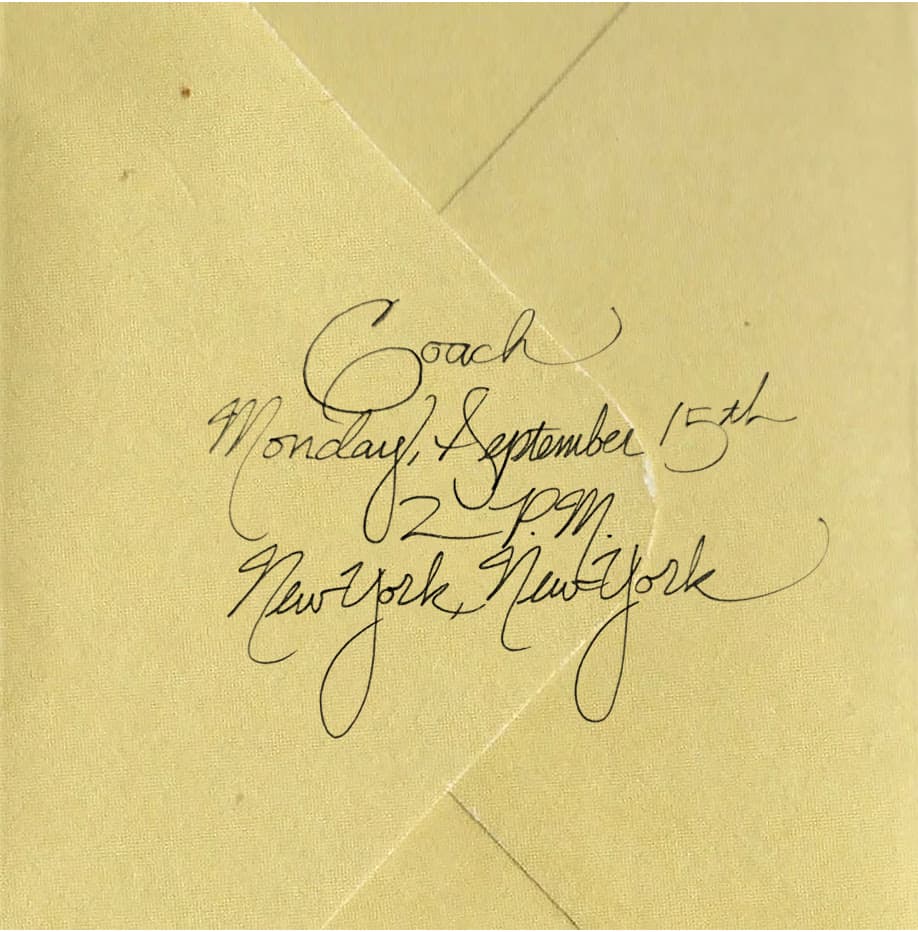 Coach
Monday, September 15th
2 P.M.
New York, New York